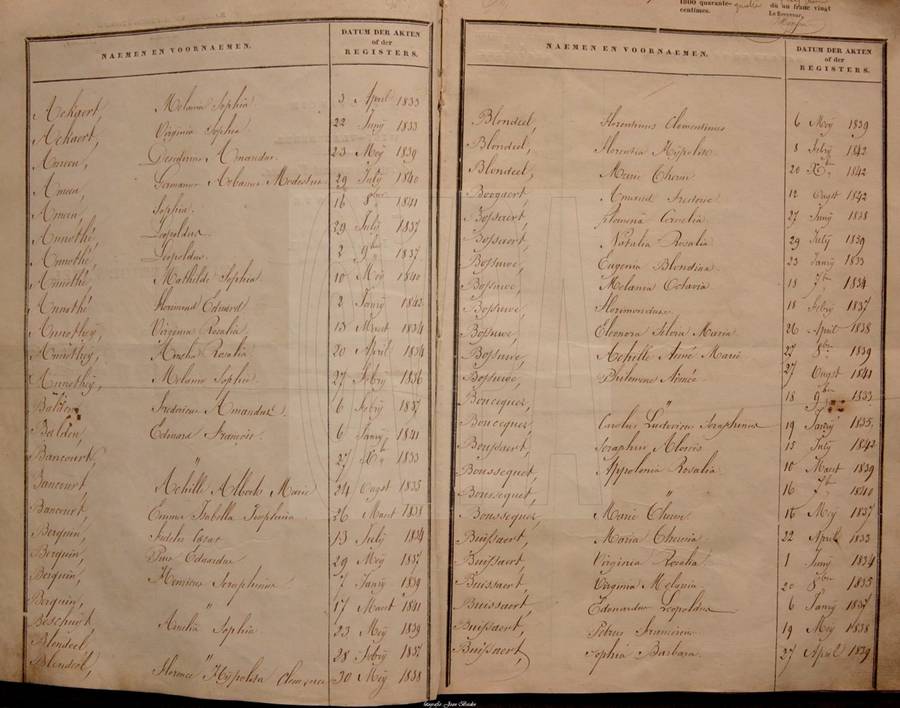 NAEMEN EN VOORNAEMEN.
DATUM DER AKTEN
of der
REGISTERS.
Ackaert, Melania Sophia 3 April 1833
Ackaert, Virginia Sophia 22 Juny 1833
Ameeu, Desiderius Amandus 23 Mey 1839
Ameeu, Germanus Urbanus Modestus 29 July 1840
Ameeu, Sophia 16 8ber 1841
Annothé, Leopoldus 29 July 1837
Annothé, Leopoldus 2 9ber 1837
Annothé, Mathilde Sophia 10 Mey 1840
Annothé Florimond Edouard 2 Janry 1842
Annothey, Virginia Rosalia 13 Maert 1834
Annothey, Amelia Rosalia 20 April 1834
Annothey, Melanie Sophie 27 Febry 1836
Balden, Fredericus Amandus 6 Febry 1837
Balden, Edouard François 6 Janry 1841
Bancourt, " 27 1833
Bancourt, Achille Albert Marie 24 Ougst 1835
Bancourt, Emma Isabella 26 Maert 1838
Berquin, Fidelis Cesar 13 July 1834
Berquin, Pius Eduardus 29 Mey 1837
Berquin, Henricus Seraphinus 7 Janry 1839
Berquin, " 17 Maert 1841
Beschuit Amelia Sophia 23 Mey 1839
Blondeel, " 28 Febry 1837
Blondeel, Florence Hypolita Clemence 30 Mey 1838
1800 quarante-quatre
centimes.
du un franc vingt
Le Receveur,
NAEMEN EN VOORNAEMEN.
DATUM DER AKTEN
of der
REGISTERS.
Blondeel, Florentinus Clementinus 6 Mey 1839
Blondeel, Florentia Hypolite 8 Febry 1842
Blondeel, Marie Therese 20 Xber 1842
Boogaert, Amand Frederic 12 Ougst 1842
Bossaert, Philomena Amelia 27 Juny 1838
Bossaert, Natalia Rosalia 29 July 1839
Bossuwe, Eugenia Blondina 23 Janry 1833
Bossuwe, Melania Octavia 18 7ber 1834
Bossuwe, Florimondus 18 Febry 1837
Bossuwe, Eleonora Silvia Maria 26 April 1838
Bossuwe, Achille Aimé Marie 27 8ber 1839
Bossuwe, Philomene Aimée 27 Ougst 1841
Boucquez, " 18 9ber 1833
Boucquez, Carolus Ludovicus Seraphinus 19 Janry 1835
Boussaert, Seraphin Aloïs 15 July 1842
Boussequet, Appolonia Rosalia 10 Maert 1839
Boussequet, " 16 7ber 1840
Boussequez, Marie Therese 10 Mey 1837
Buissaert, Maria Theresia 22 April 1833
Buissaert, Virginia Rosalia 1 Juny 1834
Buissaert, Virginia Melania 20 8ber 1835
Buissaert, Edouardus Leopoldus 6 Janry 1837
Buissaert, Petrus Franciscus 19 Mey 1838
Buissaert, Sophia Barbara 27 April 1839